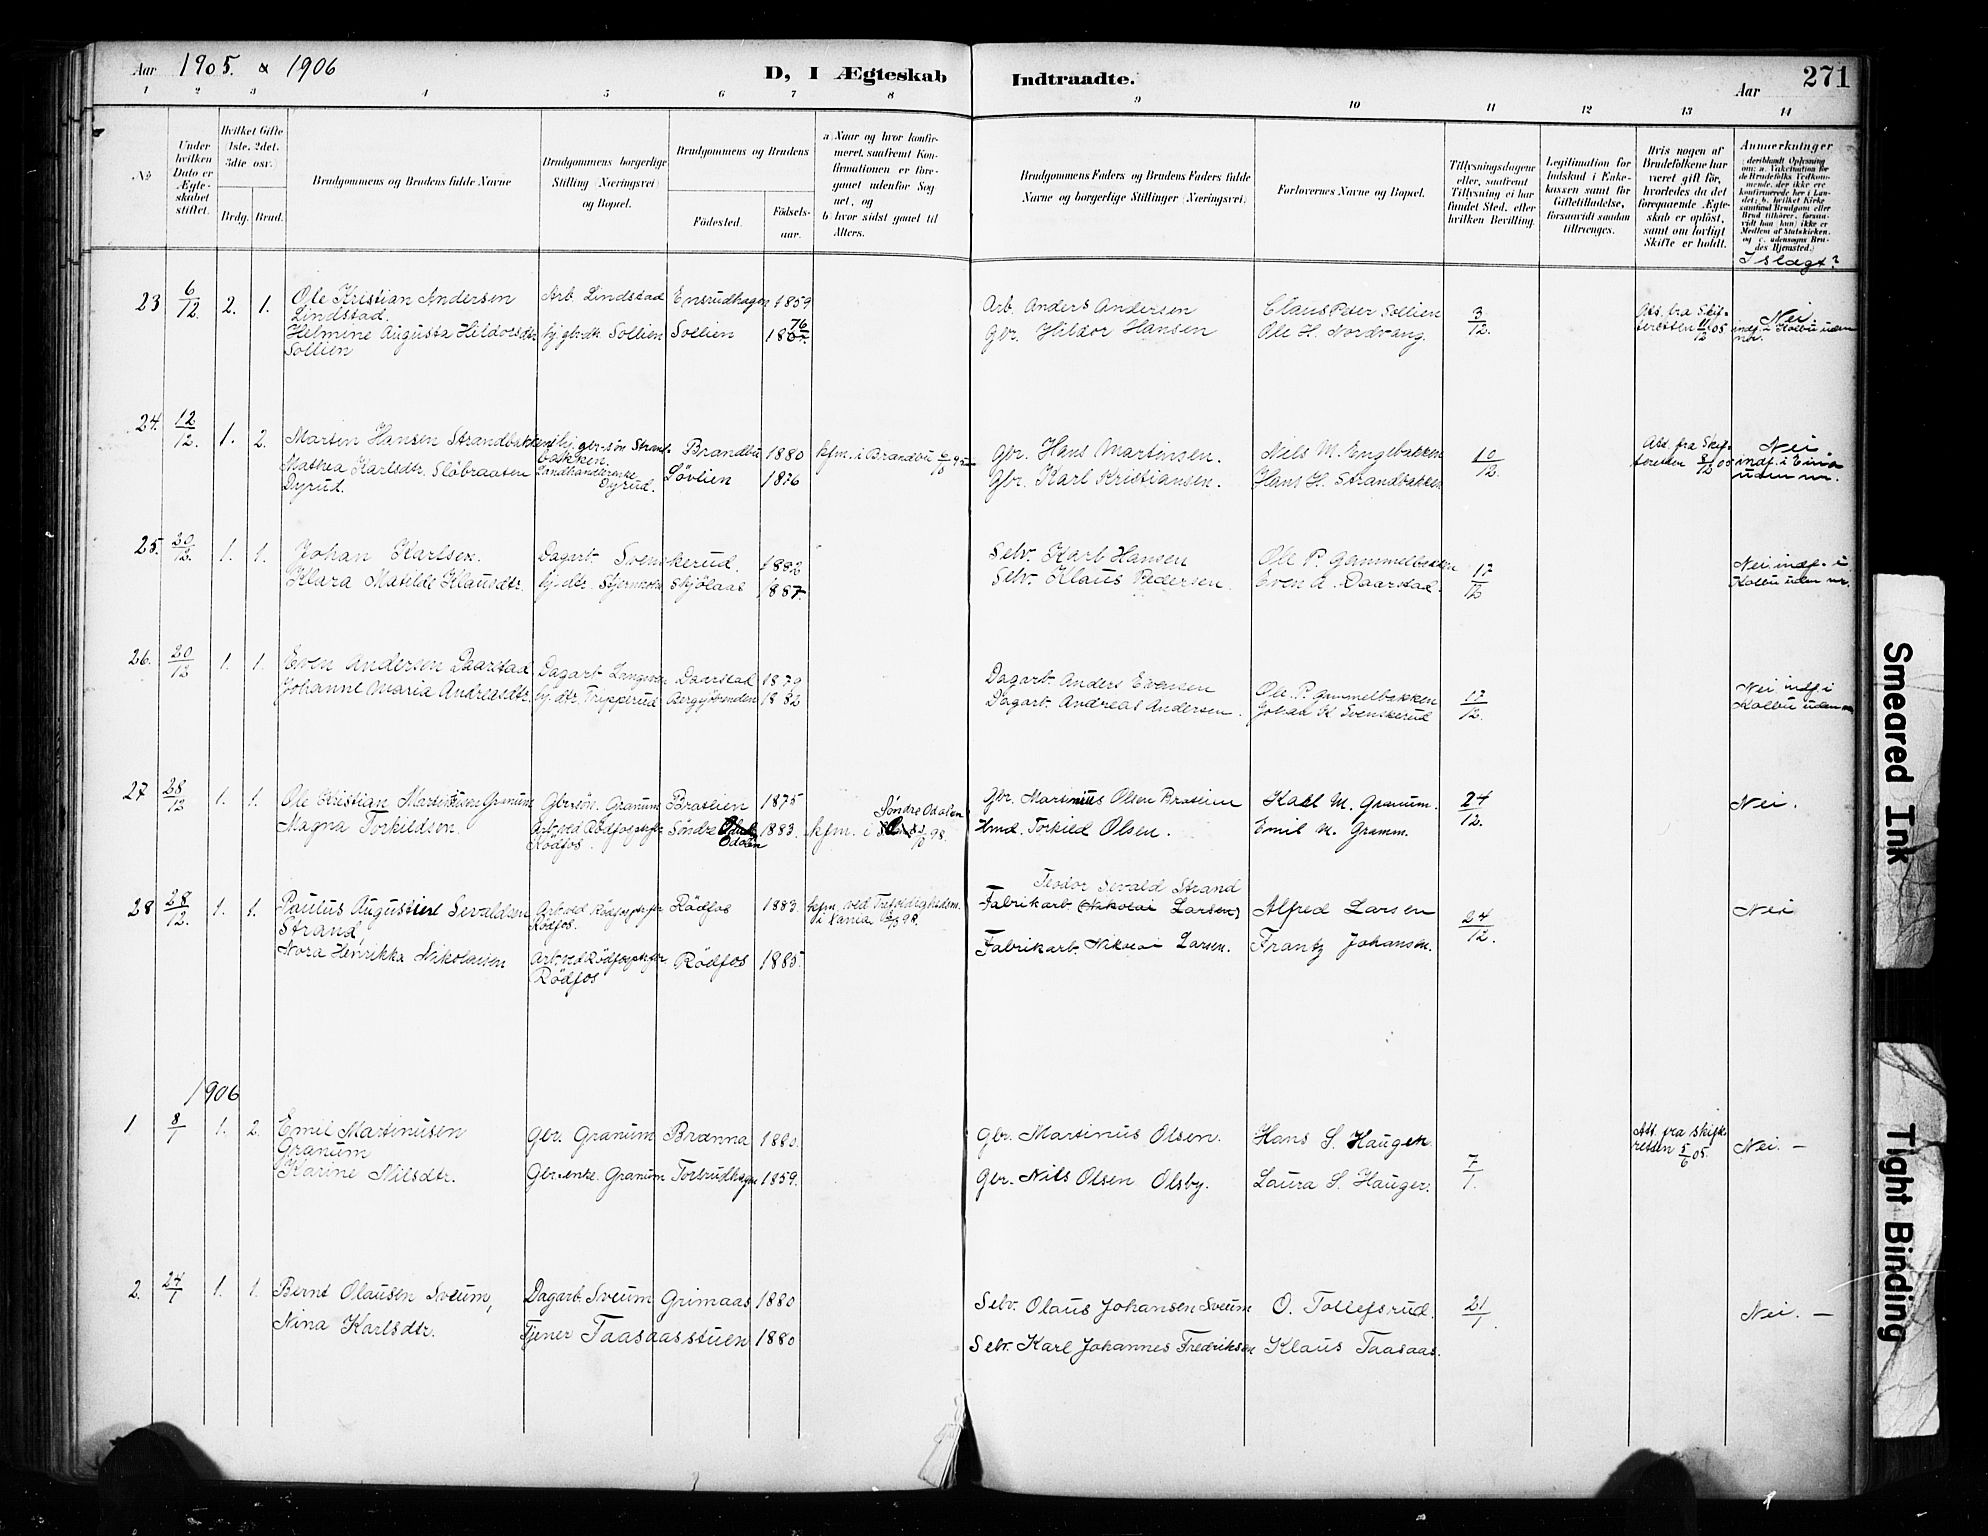 Aar 1905. & 1906 D, I Ægteskab Indtraadte. Aar 271
1 2 3 4 5 6 7 8 9 10 11 12 13 14
No
Under hvilken Dato er Ægteskabet stiftet.
Hvilket Gifte 1ste. 2det. 3die osv.
Brdg. Brud.
Brudgommens og Brudens fulde Navne
Brudgommens borgerlige Stilling (Næringsvei) og Bopæl.
Brudgommens og Brudens
Fødested.
Fødselsaar.
a) Naar og hvor konfirmeret, saafremt Konfirmationen er foregaaet udenfor Sognet, og
b) hvor sidst gaaet til Alters.
Brudgommens Faders og Brudens Faders fulde Navne og borgerlige Stillinger (Næringsvei)
Forlovernes Navne og Bopæl.
Tillysningsdagene eller, saafremt Tillysning ei har fundet Sted, efter hvilken Bevilling.
Legitimation for Indskud i Enkekassen samt for Giftetilladelse, forsaavidt saadan tiltrænges.
Hvis nogen af Brudefolkene har været gift før, hvorledes da det foregaaende Ægteskab er opløst, samt om lovligt Skifte er holdt.
Anmerkninger
I slægt?
23 6/12 2. 1. Ole Kristian Andersen Arb. Lindstad Ensrudhagen 1859 Arb. Anders Andersen Claus Peter Sollien 3/12. Att. fra Skif- Nei.
Lindstad.
Helmine Augusta Hildorsdtr hj. gbdt. Sollien Sollien 1867. 76 Gbr. Hildor Hansen Ole H. Nordvang. teretten 11/12 05 indf. i Kolbu uden
Sollien nr.
24. 12/12. 1. 2. Martin Hansen Strandbakken hj. gbr-søn Strand- Brandbu 1880 kfm. i Brandbu 95 Gbr. Hans Martinsen. Niels M. Engebakken 10/12. Att. fra Skif- Nei
bakken.
Mathea Karlsdtr. Slöbraaten Landhandlerenke Løvlien 1876 Gbr. Karl Kristiansen. Hans H. Strandbakken teretten 8/12 05 indf. i Eina
Dyrud. Dyrud. uden nr.
25. 20/12. 1. 1. Johan Karlsen. Dagarb. Svenskerud. 1882 Selv. Karl Hansen Ole P. Gammelbakken 17/12 Nei. indf. i
Klara Matilde Klausdtr. hj. dtr. Skjølaas 1887. Selv. Klaus Pedersen. Even A. Daarstad. Kolbu uden nr.
26. 20/12 1. 1. Even Andersen Daarstad Dagarb. Daarstad 1879 Dagarb. Anders Evensen Ole P. Gammelbakken 17/12. Nei indf. i
Johanne Maria Andreasdtr. hj. dtr. Tripperud 1882 Dagarb. Andreas Andersen. Johan K. Svenskerud Kolbu uden nr
27 28/12 1. 1. Ole Kristian Martinusen Granum Gbrsøn. Granum Brateien 1875 Søndre Odalen Gbr. Martinius Olsen Brateien Karl M. Granum. 24/12. Nei.
Magna Torkildsen. Arb. ved Rödfos Søndre Odalen 1883. kfm. i 98. Hmd. Torkild Olsen. Emil M. Granum.
Rödfos.
28 28/12. 1. 1. Paulus Augustiel Sevaldsen Arb. ved Rödfos Rödfos 1883. kfm. ved Trefoldighedsm. Teodor Sevald Strand
Strand Rödfos. i Kania 98. Fabrikarb. (Nikolai Larsen) Alfred Larsen 24/12. Nei
Nora Henrikka Nikolaisen Arb. ved Rödfos Rödfos 1885. Fabrikarb. Nikolai Larsen. Frantz Johansen.
Rödfos
1906
1 8/1 1. 2. Emil Martinusen Gbr. Granum Brænna 1880. Gbr. Martinus Olsen. Hans S. Haugen 7/1. Att. fra skifte- Nei. —
Granum retten 5/6 05.
Karine Nilsdtr. Gbr.enke Granum Torbrudhagen 1859. Gbr. Nils Olsen Olsby. Laura S. Haugen.
2. 24/1 1. 1. Bernt Olausen Sveum, Dagarb. Sveum Grimaas 1880 Selv. Olaus Johansen Sveum O. Tollefsrud. 21/1. Nei. —
Nina Karlsdtr. Tjener Taasaasstuen 1880 Selv. Karl Johannes Fredriksen Klaus Taasaas.
Smeared Ink
Tight Binding